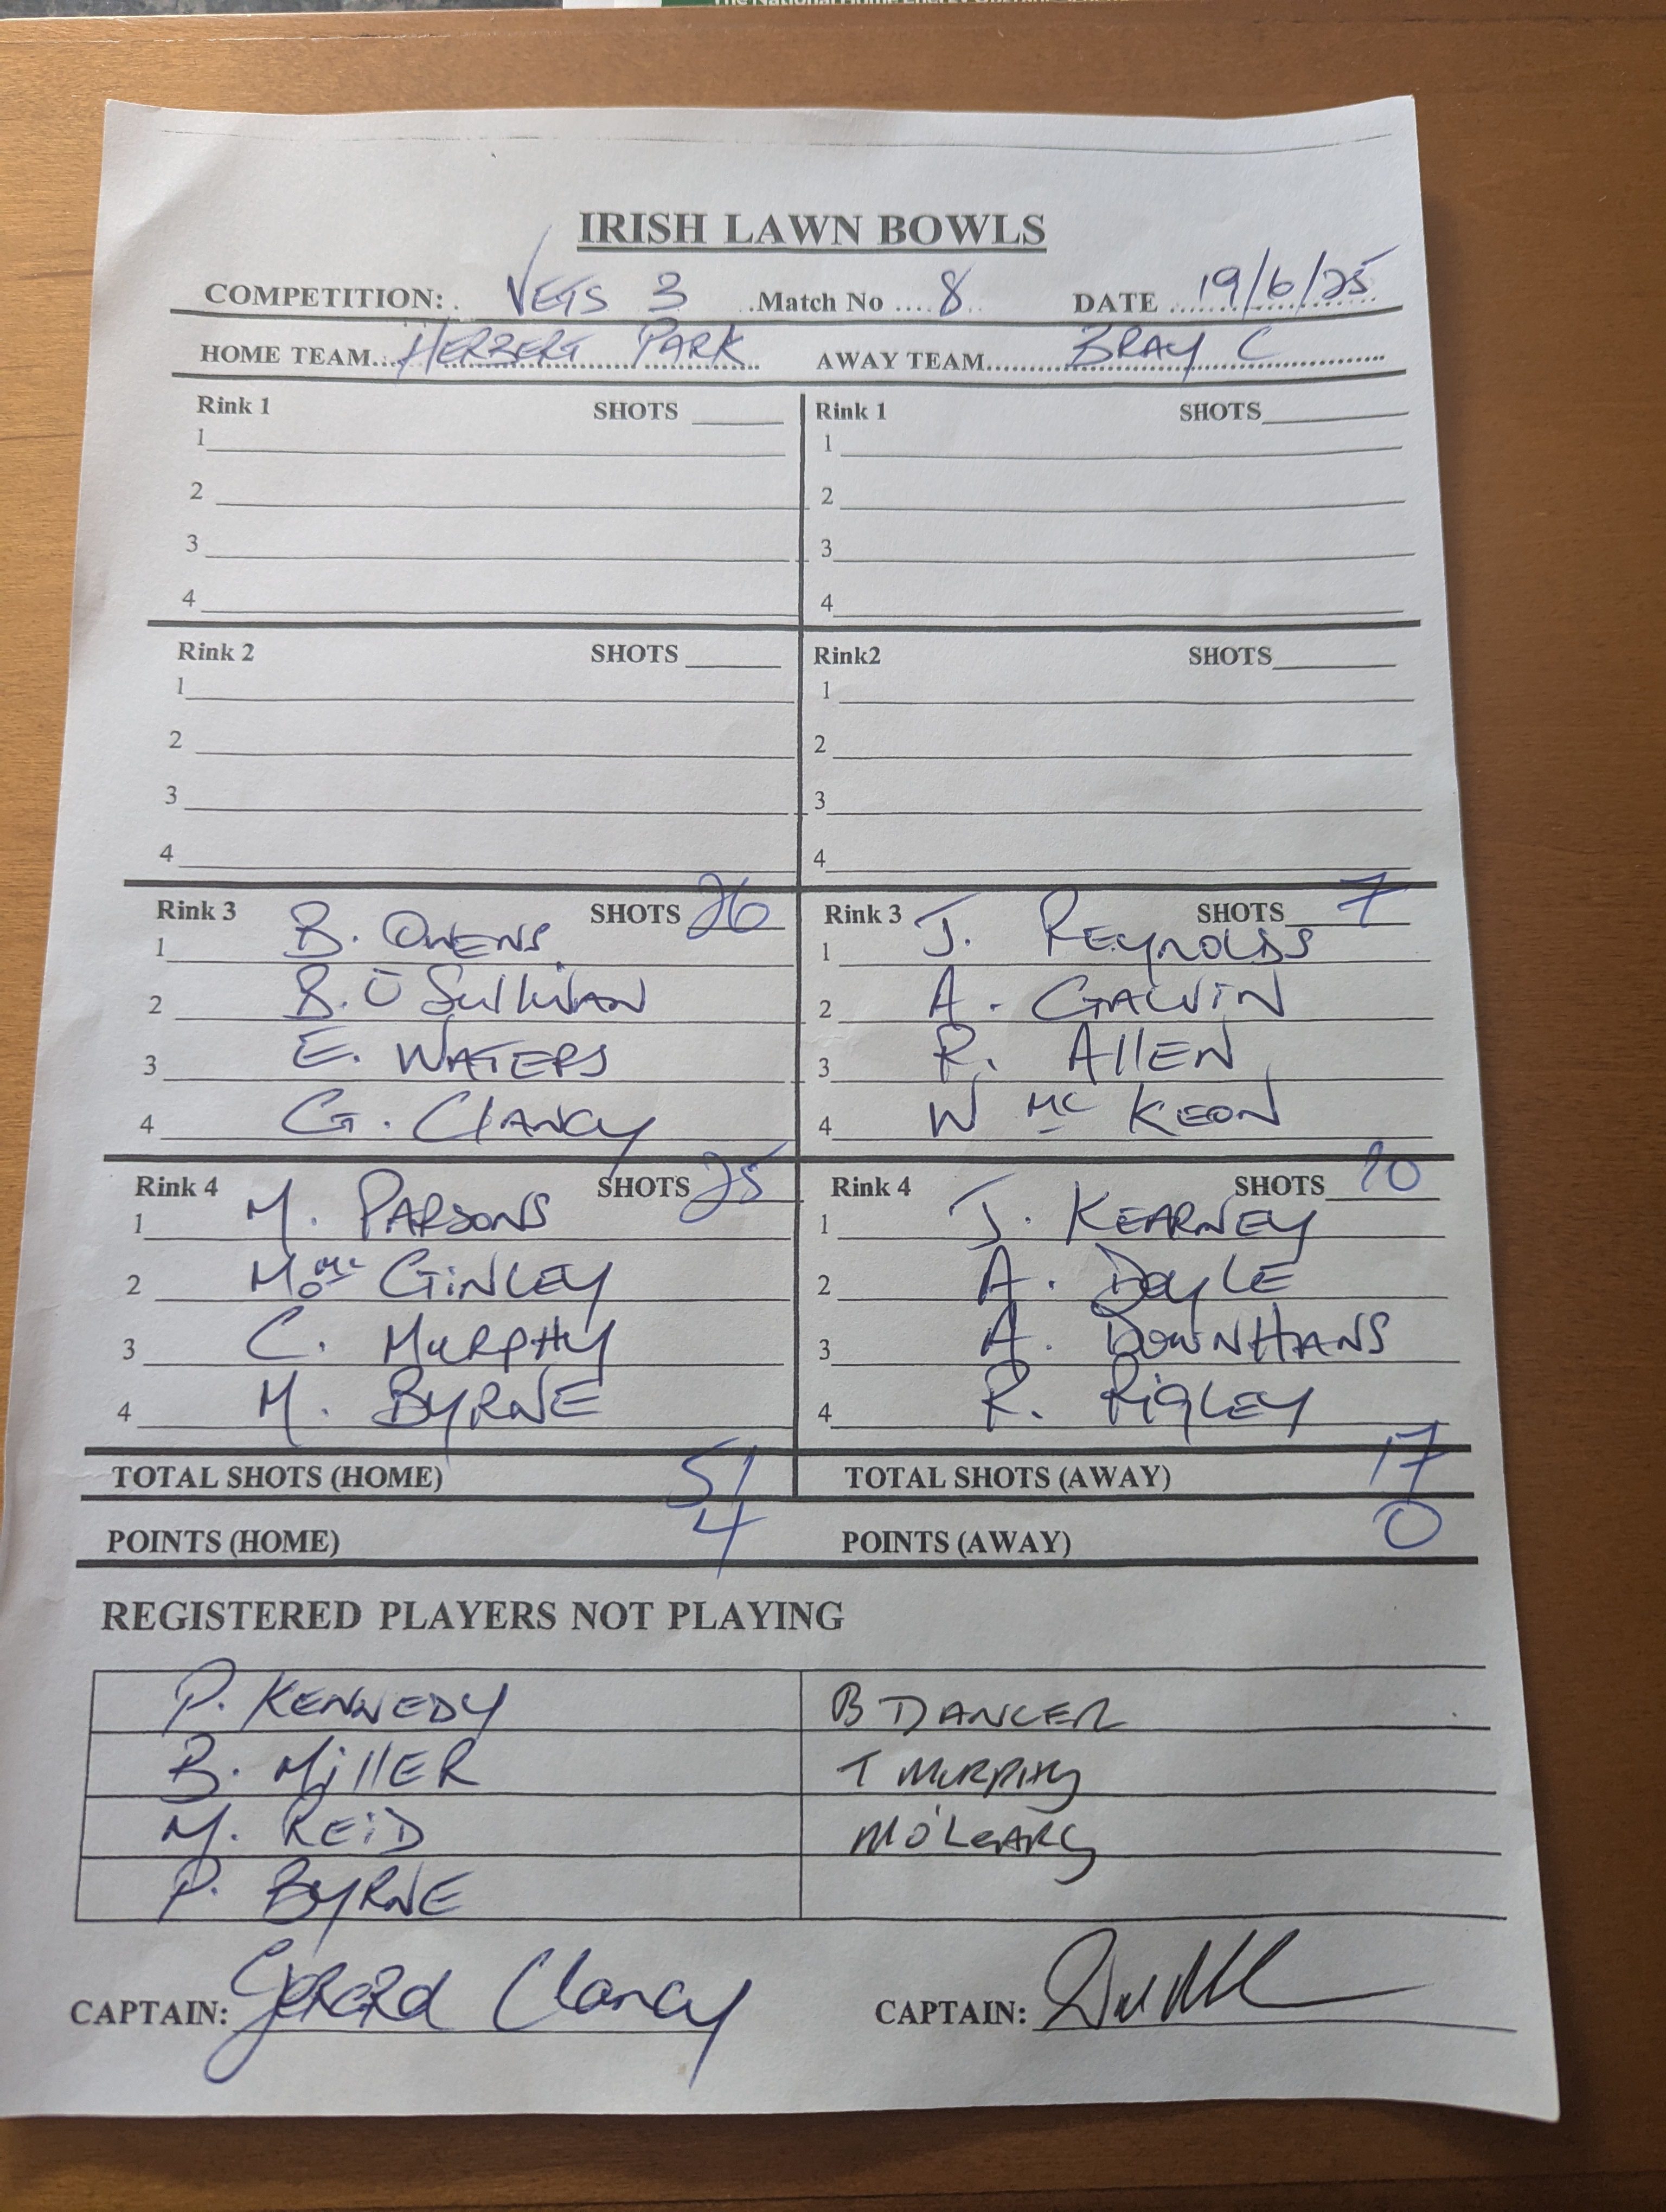 IRISH LAWN BOWLS
COMPETITION: VETS 3 Match No 8 DATE 19/6/25
HOME TEAM HERBERT PARK AWAY TEAM BRAY C
Rink 1 SHOTS Rink 1 SHOTS
1 1
2 2
3 3
4 4
Rink 2 SHOTS Rink2 SHOTS
1 1
2 2
3 3
4 4
Rink 3 SHOTS 26 Rink 3 SHOTS 7
1 B. OWENS 1 J. REYNOLDS
2 B. O SullivAN 2 A. GALVIN
3 E. WATERS 3 R. AllEN
4 G. ClANCY 4 W Mc KEON
Rink 4 SHOTS 25 Rink 4 SHOTS 10
1 M. PARSONS 1 J. KEARNEY
2 M. Mc GiNLEY 2 A. DOYLE
3 C. MURPHY 3 A. DOWNHANS
4 M. BYRNE 4 R. RIGLEY
TOTAL SHOTS (HOME) 51 TOTAL SHOTS (AWAY) 17
POINTS (HOME) 4 POINTS (AWAY) 0
REGISTERED PLAYERS NOT PLAYING
P. KENNEDY B DANCER
B. MillER T MURPHY
M. REiD M O'LEARY
P. BYRNE
CAPTAIN: Gerard Clancy CAPTAIN: